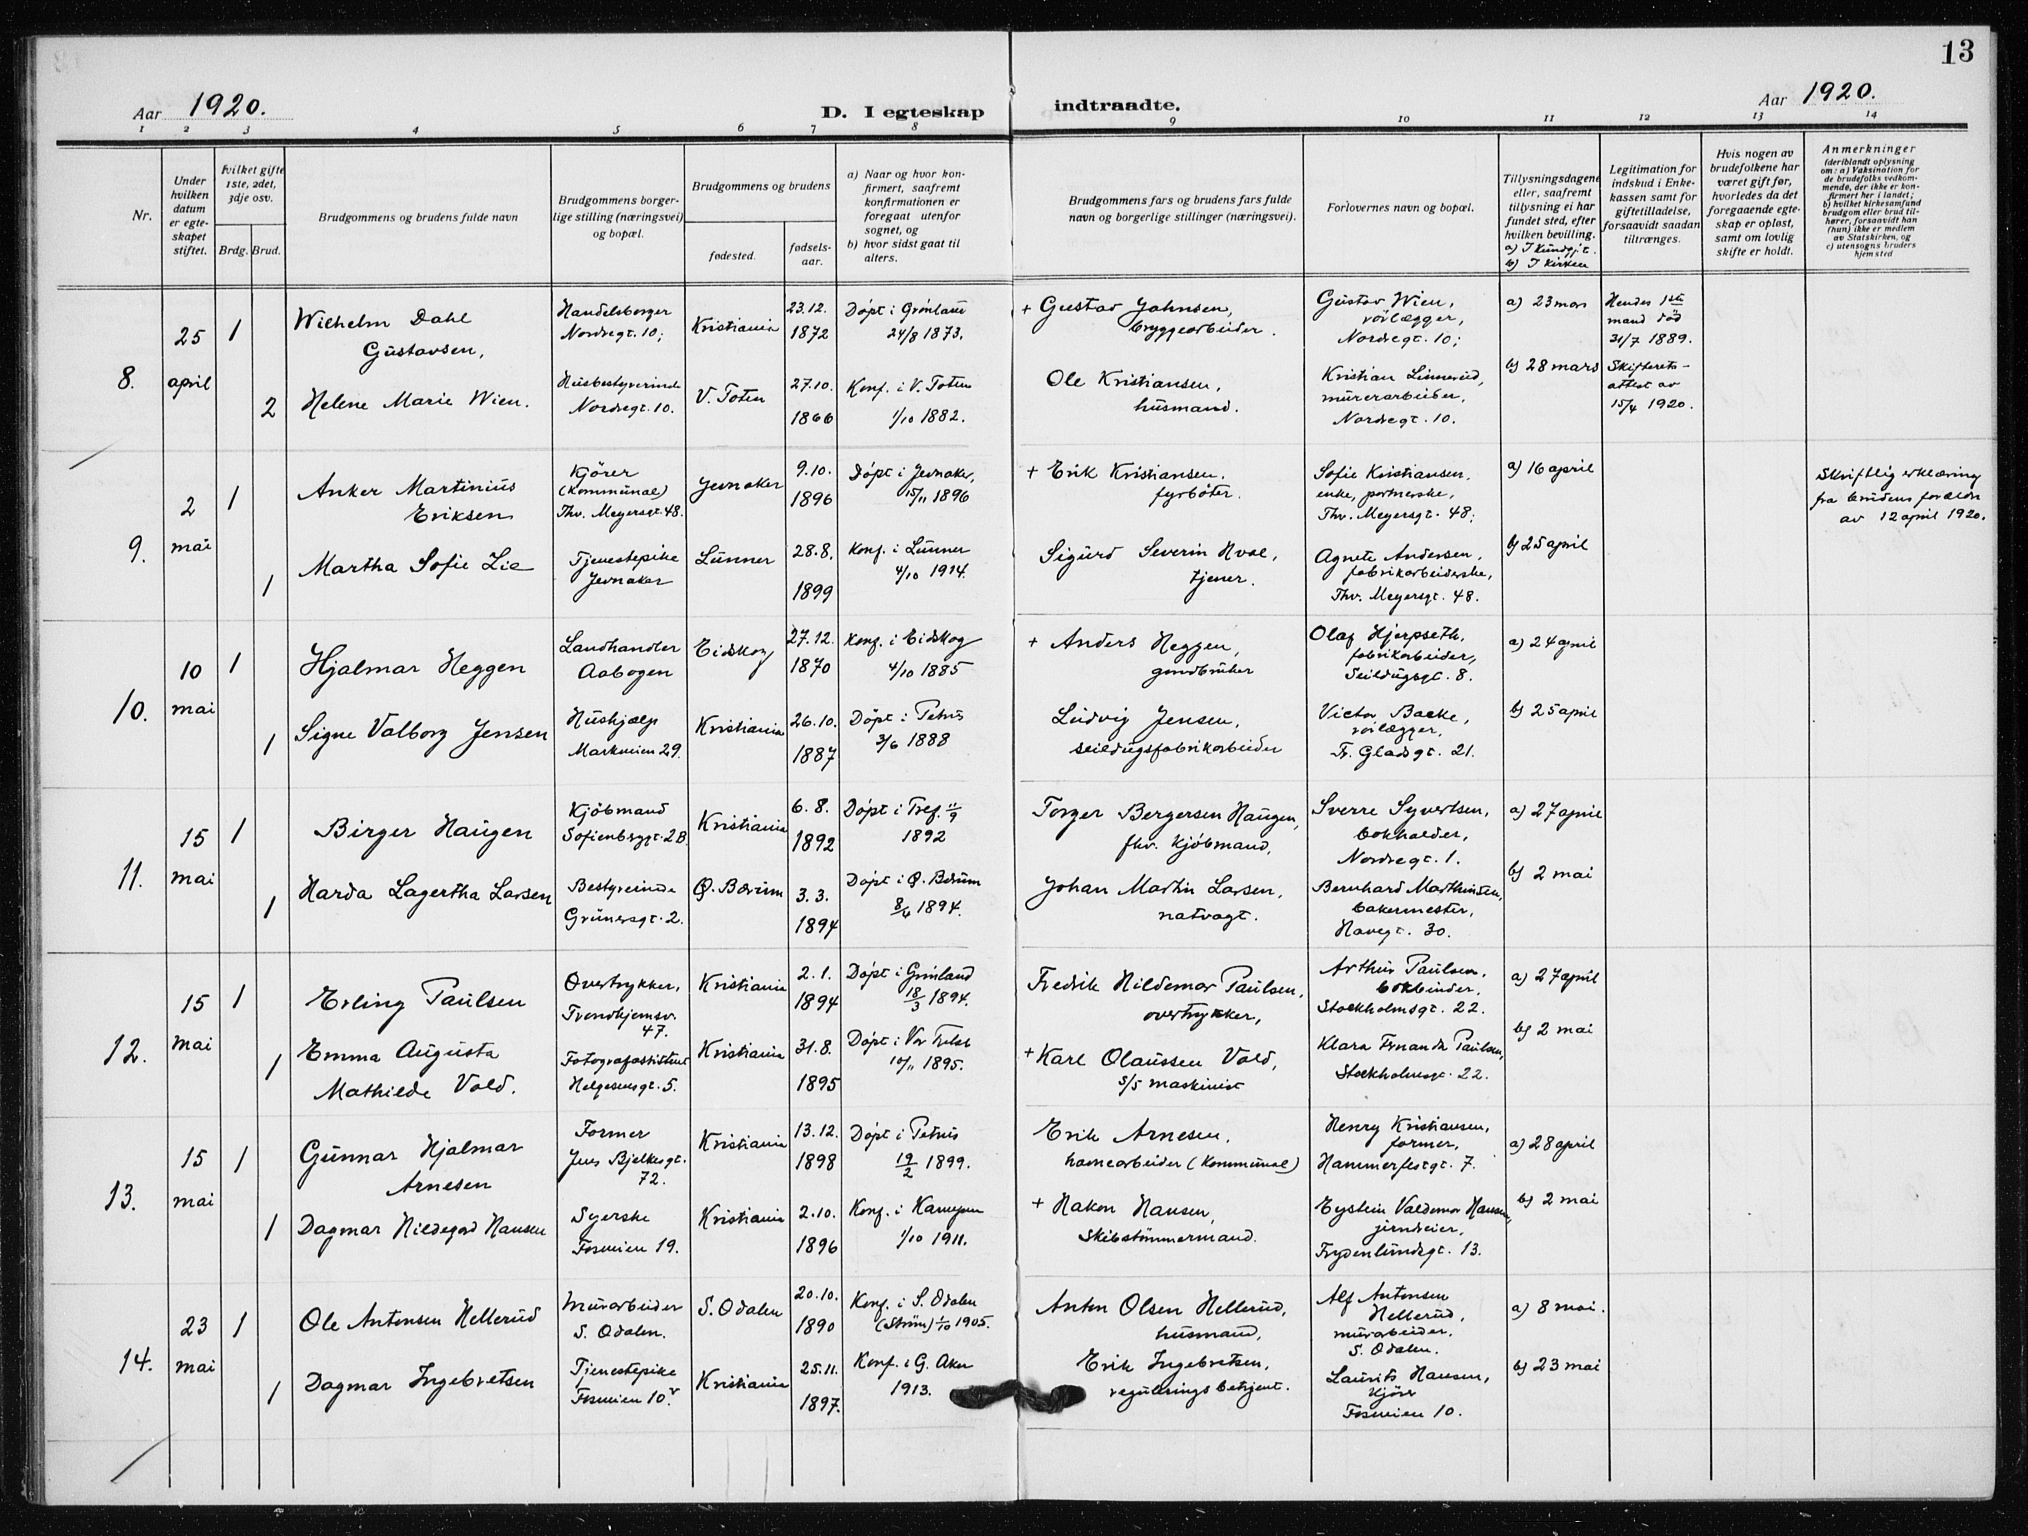 13
Aar 1920.
D. I egteskap
indtraadte.
Aar 1920.
1 2 3 4 5 6 7 8 9 10 11 12 13 14
Nr.
Under
hvilken
datum
er egte-
skapet
stiftet.
hvilket gifte
1ste, 2det,
3dje osv.
Brdg.
Brud.
Brudgommens og brudens fulde navn
Brudgommens borger-
lige stilling (næringsvei)
og bopæl.
Brudgommens og brudens
fødested.
fødsels-
aar.
a) Naar og hvor kon-
firmert, saafremt
konfirmationen er
foregaat utenfor
sognet, og
b) hvor sidst gaat til
alters.
Brudgommens fars og brudens fars fulde
navn og borgerlige stillinger (næringsvei).
Forlovernes navn og bopæl.
Tillysningsdagene
eller, saafremt
tillysning ei har
fundet sted, efter
hvilken bevilling.
a) I Kundgjt.
b) I Kirken
Legitimation for
indskud i Enke-
kassen samt for
giftetilladelse,
forsaavidt saadan
tiltrænges.
Hvis nogen av
brudefolkene har
været gift før,
hvorledes da det
foregaaende egte-
skap er opløst,
samt om lovlig
skifte er holdt.
Anmerkninger
(deriblandt oplysning
om: a) Vaksination for
de brudefolks vedkom-
mende, der ikke er kon-
firmert her i landet;
b) hvilket kirkesamfund
brudgom eller brud til-
hører, forsaavidt han
(hun) ikke er medlem
av Statskirken, og
c) utensogns bruders
hjemsted
8.
25
april
1
Wilhelm Dahl
Gustavsen,
Handelsborger
Nordregt. 10;
Kristiania
23.12.
1872
Døpt i Grønland
24/8 1873.
+ Gustav Johnsen,
bryggearbeider.
Gustav Wien,
rörlægger,
Nordregt. 10;
a) 23 mars
Hendes 1ste
mand død
31/7 1889.
2
Helene Marie Wien.
Husbestyrerinde
Nordregt. 10.
V. Toten
27.10.
1866
Konf. i V. Toten
1/10 1882.
Ole Kristiansen,
husmand.
Kristian Linnerud,
murerarbeider,
Nordregt. 10.
b) 28 mars
Skifterets-
attest av
15/4 1920.
9.
2
mai
1
Anker Martinius
Eriksen
Kjörer
(Kommunal)
Thv. Meyersgt. 48.
Jevnaker
9.10.
1896
Døpt i Jevnaker,
15/11 1896
+ Erik Kristiansen,
fyrbøter.
Sofie Kristiansen,
enke, portnerske,
Thv. Meyersgt. 48;
a) 16 april
Skriftlig erklæring
fra brudens forældre
av 12 april 1920.
1
Martha Sofie Lie
Tjenestepike
Jevnaker
Lunner
28.8.
1899
Konf. i Lunner
4/10 1914.
Sigurd Severin Hval,
tjener.
Agnete Andersen,
fabrikarbeiderske,
Thv. Meyersgt. 48.
b) 25 april
10.
10
mai
1
Hjalmar Heggen
Landhandler
Aabogen
Eidskog
27.12.
1870
Konf. i Eidskog
4/10 1885
+ Anders Heggen,
gardbruker
Olaf Hjerpseth,
fabrikarbeider,
Seildugsgt. 8.
a) 24 april
1
Signe Valborg Jensen
Hushjælp
Markveien 29.
Kristiania
26.10.
1887
Døpt i Petrus
3/6 1888
Ludvig Jensen,
seildugsfabrikarbeider
Victor Backe,
rörlægger,
Fr. Gladsgt. 21.
b) 25 april
11.
15
mai
1
Birger Haugen
Kjøbmand
Sofienbergt. 2B.
Kristiania
6.8.
1892
Døpt i Tref. 11/9
1892
Torger Bergersen Haugen,
fhv. Kjøbmand,
Sverre Syvertsen,
bokholder,
Nordregt. 1.
a) 27 april
1
Harda Lagertha Larsen
Bestyrerinde
Grünersgt. 2.
Ø. Bærum
3.3.
1894
Døpt i Ø. Bærum
8/6 1894.
Johan Martin Larsen,
natvagt.
Bernhard Marthinsen,
bakermester,
Havegt. 30.
b) 2 mai
12.
15
mai
1
Erling Paulsen
Overtrykker,
Trondhjemsv.
47.
Kristiania
2.1.
1894
Døpt i Grønland
18/3 1894.
Fredrik Hildemar Paulsen,
overtrykker,
Arthur Paulsen,
bokbinder,
Stockholmsgt. 22.
a) 27 april
1
Emma Augusta
Mathilde Vold.
Fotografassistent
Helgesensgt. 5.
Kristiania
31.8.
1895
Døpt i Vor Frelser
10/11 1895.
+ Karl Olaussen Vold,
S/S maskinist
Klara Fernanda Paulsen,
Stockholmsgt. 22.
b) 2 mai
13.
15
mai
1
Gunnar Hjalmar
Arnesen
Former
Jens Bjelkesgt.
72.
Kristiania
13.12.
1898
Døpt i Petrus
19/2 1899.
Erik Arnesen,
havnearbeider (Kommunal)
Henry Kristiansen,
former,
Hammerfestgt. 7.
a) 28 april
1
Dagmar Hildegard Hansen
Syerske
Fosveien 19.
Kristiania
2.10.
1896
Konf. i Kampen
1/10 1911.
+ Hakon Hansen,
Skibstømmermand.
Eystein Valdemar Hansen,
jerndreier,
Frydenlundsgt. 13.
b) 2 mai
14.
23
mai
1
Ole Antonsen Hellerud
Murarbeider
S. Odalen.
S. Odalen
20.10.
1890
Konf. i S. Odalen
(Strøm) 1/10 1905.
Anton Olsen Hellerud,
husmand,
Alf Antonsen
Hellerud,
murarbeider,
S. Odalen.
a) 8 mai.
1
Dagmar Ingebretsen
Tjenestepike
Fosveien 10
Kristiania
25.11.
1897.
Konf. i G. Aker
1913.
Erik Ingebretsen,
reguleringsbetjent.
Laurits Hansen,
Kjörer
Fosveien 10.
b) 23 mai